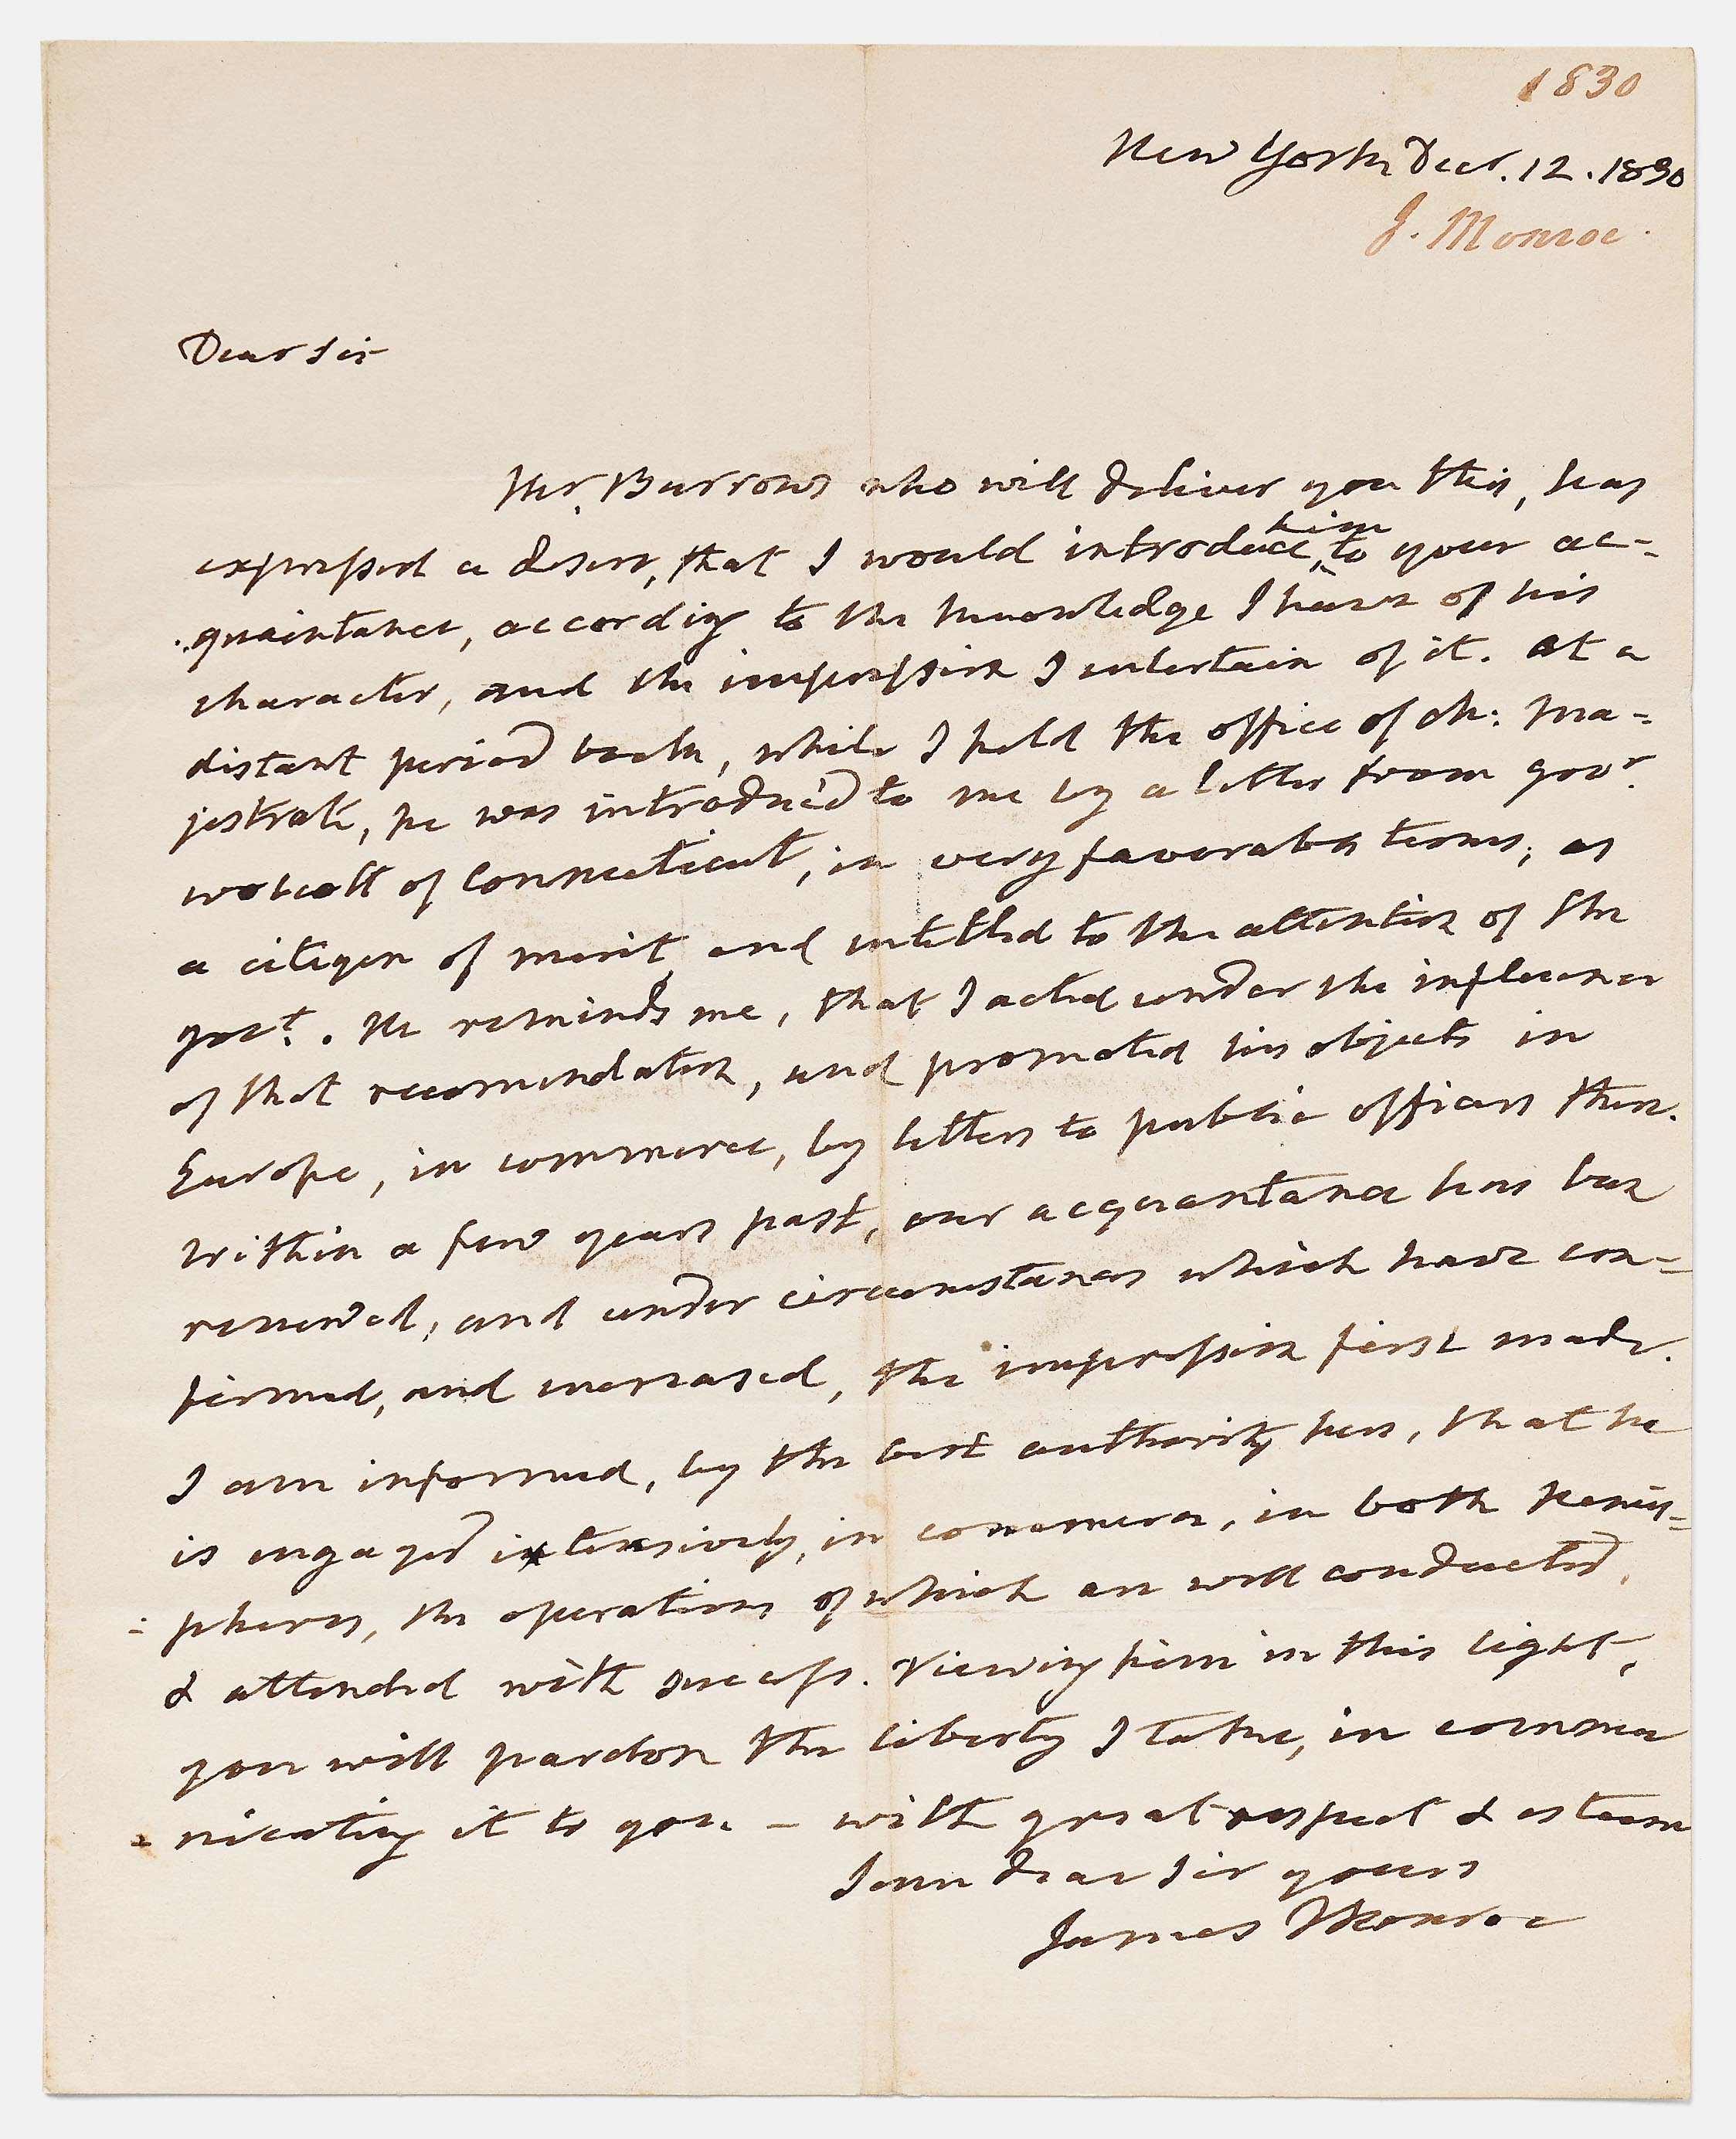 1830
New York Decr. 12. 1830
J. Monroe.
Dear Sir
Mr. Burrows who will deliver you this, has
expressed a desire, that I would introduce, him to your ac-
quaintance, according to the knowledge I have of his
character, and the impression I entertain of it. At a
distant period back, while I held the office of ch: ma-
jestrate, he was introduc'd to me by a letter from govr.
wolcott of Connecticut, in very favorable terms, as
a citizen of merit, and intitled to the attention of the
govt. He reminds me, that I acted under the influence
of that recomendation, and promoted his objects in
Europe, in commerce, by letters to public officers there.
Within a few years past, our acquaintance has been
renewed, and under circumstances which have con-
firmed, and increased, the impression first made.
I am informed, by the best authority here, that he
is engaged extensively, in commerce, in both hemis-
pheres, the operations of which are well conducted,
& attended with success. Viewing him in this light,
you will pardon the liberty I take, in commu
nicating it to you - with great respect & esteem
I am dear Sir yours
James Monroe